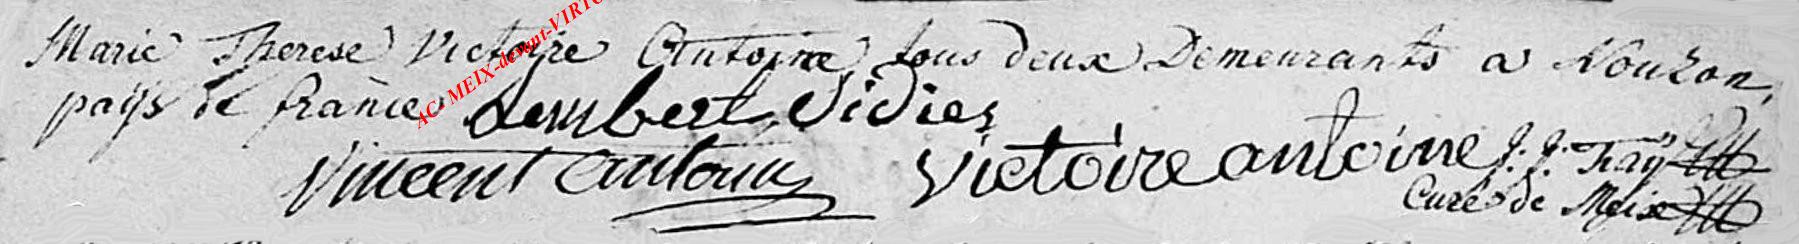 Marie Therese Victoire Antoine tous deux Demeurants a Nouzon,
pays de france Lambert Didier
Vincent Antoine Victoire antoine J. J. Tray
Curé de Meix
AC- MEIX-devant-VIRTO